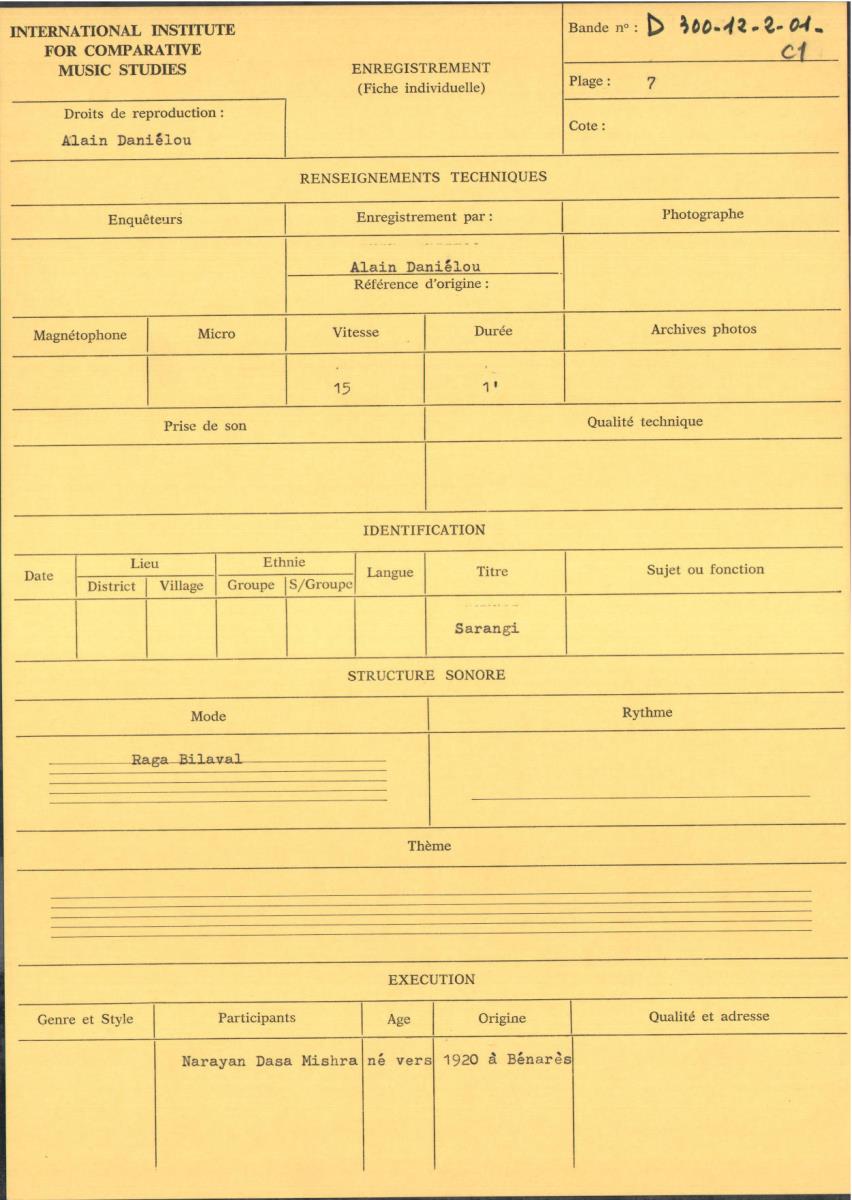 INTERNATIONAL INSTITUTE
FOR COMPARATIVE
MUSIC STUDIES
ENREGISTREMENT
(Fiche individuelle)
Bande nº : D 300-12-2-01-
C1
Plage : 7
Cote :
Droits de reproduction :
Alain Daniélou
RENSEIGNEMENTS TECHNIQUES
Enquêteurs
Enregistrement par :
Photographe
Alain Daniélou
Référence d'origine :
Magnétophone
Micro
Vitesse
Durée
Archives photos
15
1'
Prise de son
Qualité technique
IDENTIFICATION
Date
Lieu
District
Village
Ethnie
Groupe
S/Groupe
Langue
Titre
Sujet ou fonction
Sarangi
STRUCTURE SONORE
Mode
Rythme
Raga Bilaval
Thème
EXECUTION
Genre et Style
Participants
Age
Origine
Qualité et adresse
Narayan Dasa Mishra né vers 1920 à Bénarès